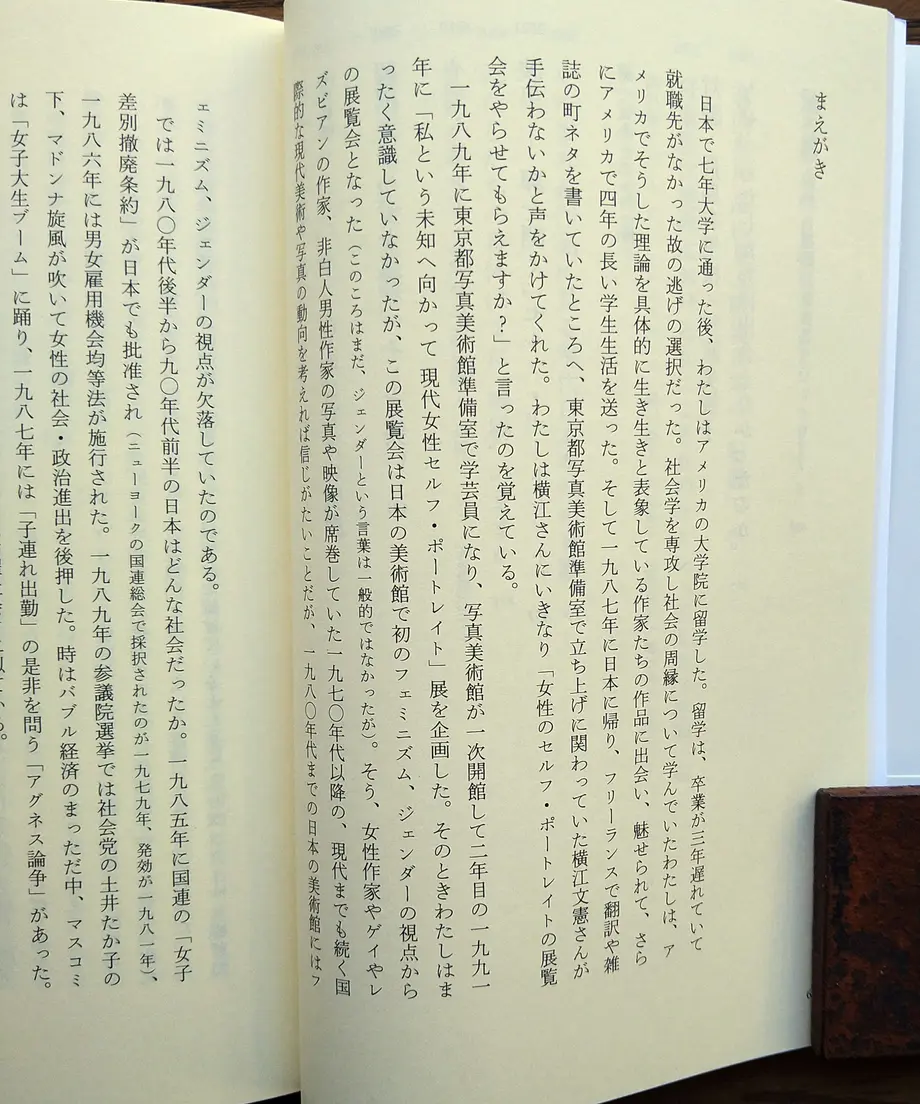 まえがき
日本で七年大学に通った後、わたしはアメリカの大学院に留学した。留学は、卒業が三年遅れていて
就職先がなかった故の逃げの選択だった。社会学を専攻し社会の周縁について学んでいたわたしは、ア
メリカでそうした理論を具体的に生き生きと表象している作家たちの作品に出会い、魅せられて、さら
にアメリカで四年の長い学生生活を送った。そして一九八七年に日本に帰り、フリーランスで翻訳や雑
誌の町ネタを書いていたところへ、東京都写真美術館準備室で立ち上げに関わっていた横江文憲さんが
手伝わないかと声をかけてくれた。わたしは横江さんにいきなり「女性のセルフ・ポートレイトの展覧
会をやらせてもらえますか？」と言ったのを覚えている。
一九八九年に東京都写真美術館準備室で学芸員になり、写真美術館が一次開館して二年目の一九九一
年に「私という未知へ向かって 現代女性セルフ・ポートレイト」展を企画した。そのときわたしはま
ったく意識していなかったが、この展覧会は日本の美術館で初のフェミニズム、ジェンダーの視点から
の展覧会となった（このころはまだ、ジェンダーという言葉は一般的ではなかったが）。そう、女性作家やゲイやレ
ズビアンの作家、非白人男性作家の写真や映像が席巻していた一九七〇年代以降の、現代までも続く国
際的な現代美術や写真の動向を考えれば信じがたいことだが、一九八〇年代までの日本の美術館にはフ
ェミニズム、ジェンダーの視点が欠落していたのである。
では一九八〇年代後半から九〇年代前半の日本はどんな社会だったか。一九八五年に国連の「女子
差別撤廃条約」が日本でも批准され（ニューヨークの国連総会で採択されたのが一九七九年、発効が一九八一年）、
一九八六年には男女雇用機会均等法が施行された。一九八九年の参議院選挙では社会党の土井たか子の
下、マドンナ旋風が吹いて女性の社会・政治進出を後押した。時はバブル経済のまっただ中、マスコミ
は「女子大生ブーム」に踊り、一九八七年には「子連れ出勤」の是非を問う「アグネス論争」があった。